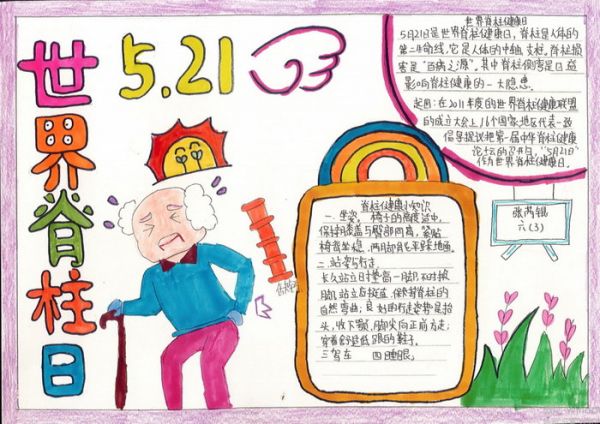 世界脊柱日
5.21
世界脊柱健康日
5月21日是世界脊柱健康日，脊柱是人体的
第二生命线，它是人体的中轴支柱。脊柱损
害是“百病之源”。其中脊柱侧弯是日益
影响脊柱健康的一大隐患。
起因：在2011年度的世界脊柱健康联盟
的成立大会上，16个国家地区代表一致
倡导提议把第一届中华脊柱健康
论坛的召开日，“5月21日”
作为世界脊柱健康日。
脊柱健康小知识
一、坐姿。椅子的高度适中，
保持膝盖与臀部同高，紧贴
椅背坐稳，两脚自然平踩地面。
二、站姿与行走
长久站立时垫高一脚，不时换
脚站立
自然弯曲；良好的行走姿势是抬
头，收下颚，脚尖向正前方走；
穿着舒适低跟的鞋子。
三驾车 四睡眠。
六(3)